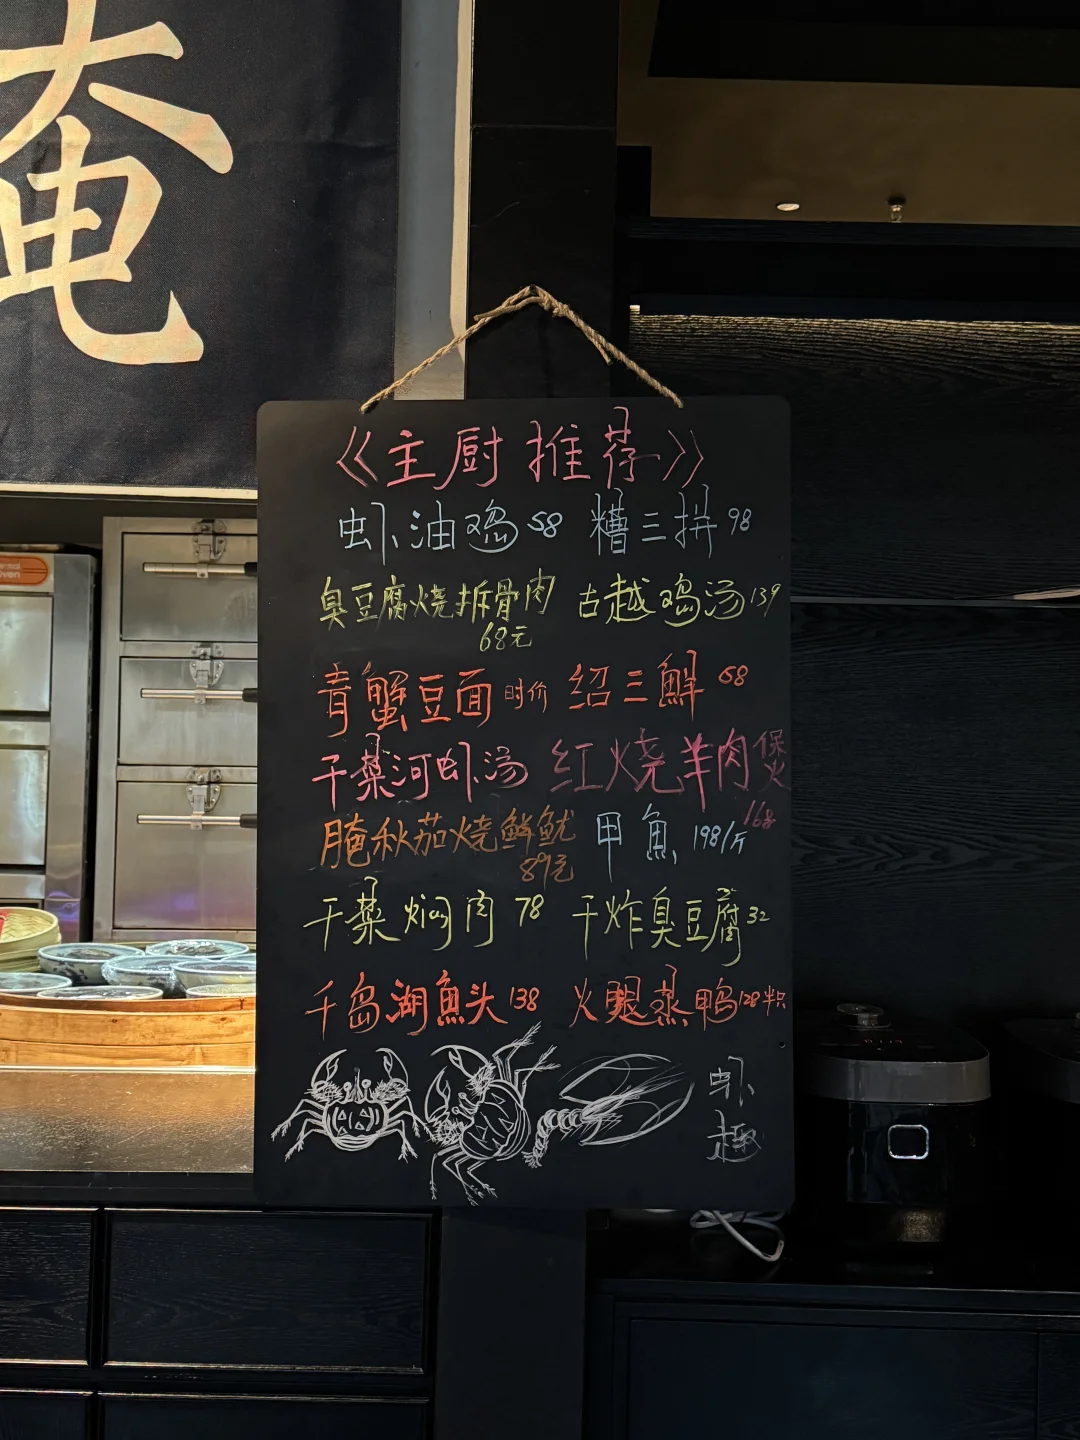 奄
《主厨推荐》
虾油鸡58 糟三拼98
臭豆腐烧拆骨肉 古越鸡汤139
68元
青蟹豆面时价 绍三鲜68
干菜河虾汤 红烧羊肉煲
168
腌秋茄烧鲜鱿 甲魚198/斤
89元
干菜焖肉78 干炸臭豆腐32
千岛湖魚头138 火腿蒸鸭128半只
虾
趣